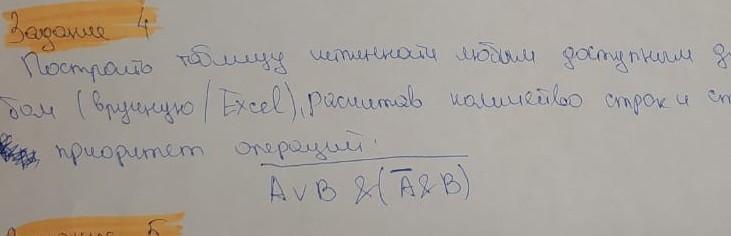 Задание 4
Построить таблицу истинности любым доступным
бом (вручную/Excel), расчитав количество строк и
приоритет операций:
A̅ ̅v̅ ̅B̅ ̅&̅ ̅(̅A̅̅&̅B̅)̅